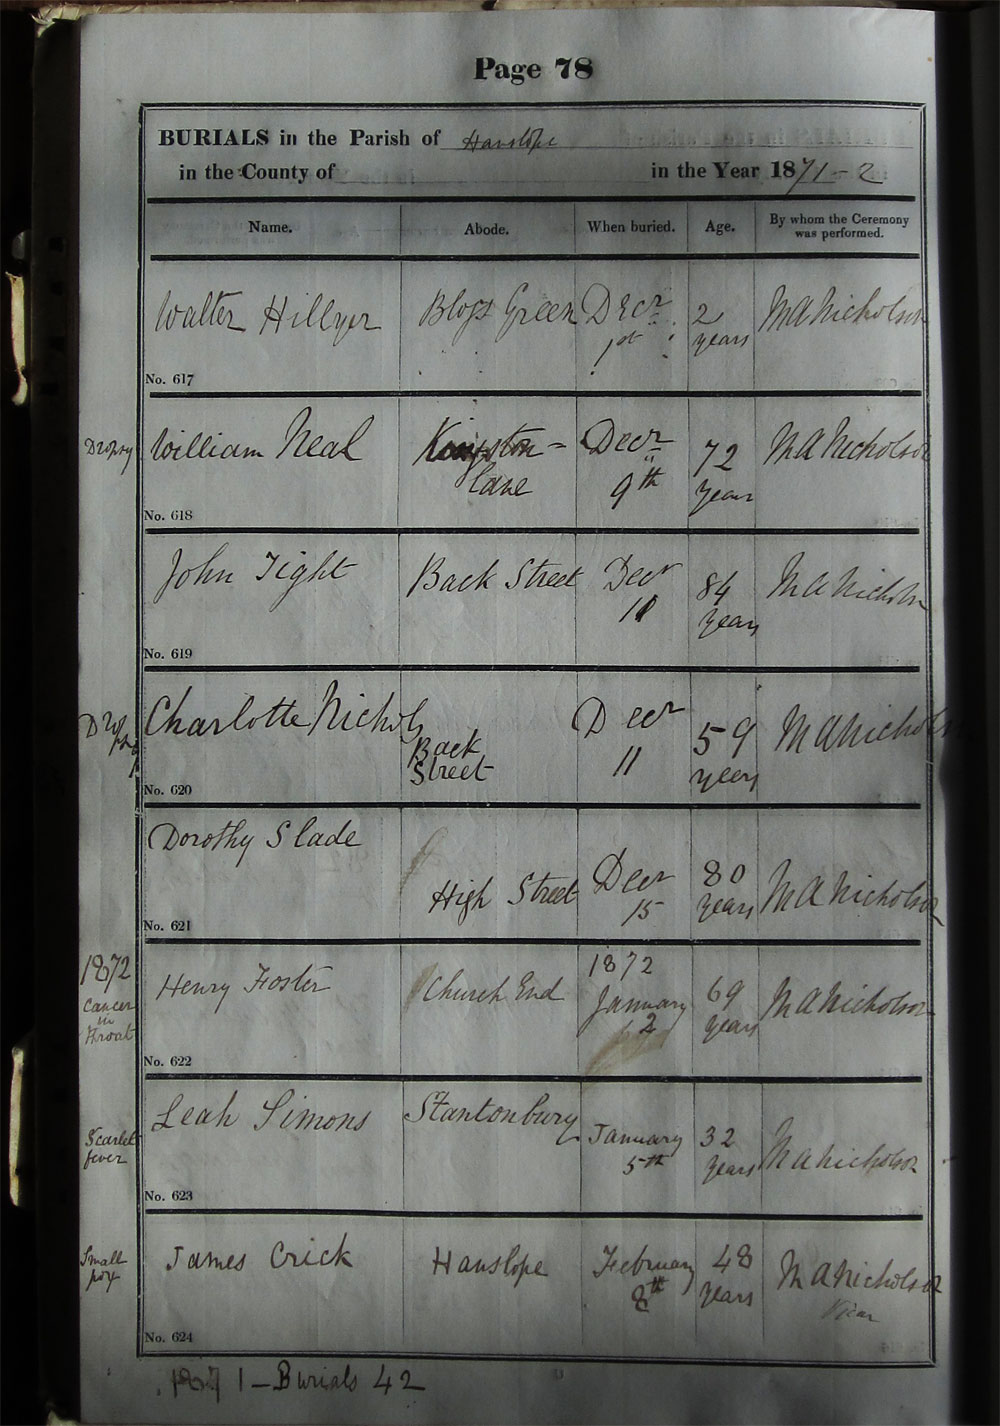 Page 78
BURIALS in the Parish of Hanslope
in the County of in the Year 1871-2
Name. Abode. When buried. Age. By whom the Ceremony was performed.
Walter Hillyer Green Decr 1st 2 years M A Nicholson
No. 617
Dropsy William Neal Kingston- lane Decr 9th 72 years M A Nicholson
No. 618
John Tight Back Street Decr 10 84 years M A Nicholson
No. 619
Dropsy Charlotte Nichols Back Street Decr 11 59 years M A Nicholson
No. 620
Dorothy Slade High Street Decr 15 80 years M A Nicholson
No. 621
1872 Cancer in Throat Henry Foster Church End 1872 January 2 69 years M A Nicholson
No. 622
Scarlet fever Leah Simons Stantonbury January 5th 32 years M A Nicholson
No. 623
Small pox James Crick Hanslope February 8th 48 years M A Nicholson Vicar
No. 624
1871 - Burials 42